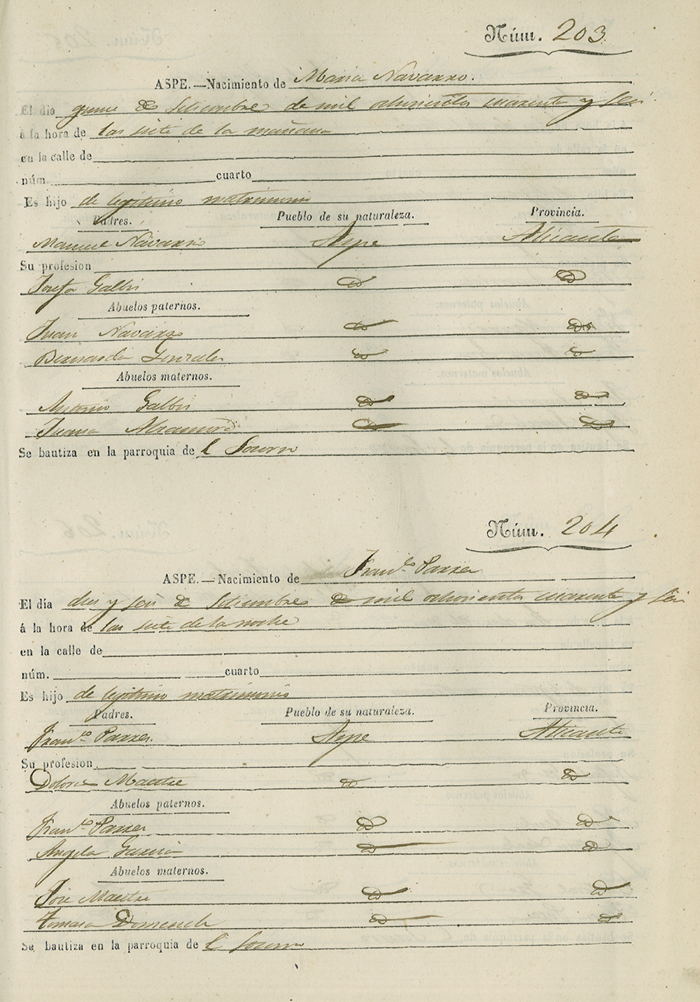 Núm. 203
ASPE.—Nacimiento de Maria Navarro.
El dia quince de Setiembre de mil ochocientos cuarenta y seis
á la hora de las siete de la mañana
en la calle de
núm. cuarto
Es hijo de legitimo matrimonio
Padres. Pueblo de su naturaleza. Provincia.
Manuel Navarro Aspe Alicante
Su profesion
Josefa Galbis d d
Abuelos paternos.
Juan Navarro d d
Bernarda Gonzales d d
Abuelos maternos.
Antonio Galbis d d
Juana d d
Se bautiza en la parroquia de l Socorro
Núm. 204
ASPE.—Nacimiento de Franco. Parrer
El dia dies y seis de Setiembre de mil ochocientos cuarenta y seis
á la hora de las siete de la noche
en la calle de
núm. cuarto
Es hijo de legitimo matrimonio
Padres. Pueblo de su naturaleza. Provincia.
Franco. Parrer Aspe Alicante
Su profesion
Dolores Mastre d d
Abuelos paternos.
Franco. Parrer d d
Angela Garcia d d
Abuelos maternos.
José Mastre d d
Tomasa Domenech d d
Se bautiza en la parroquia de l Socorro